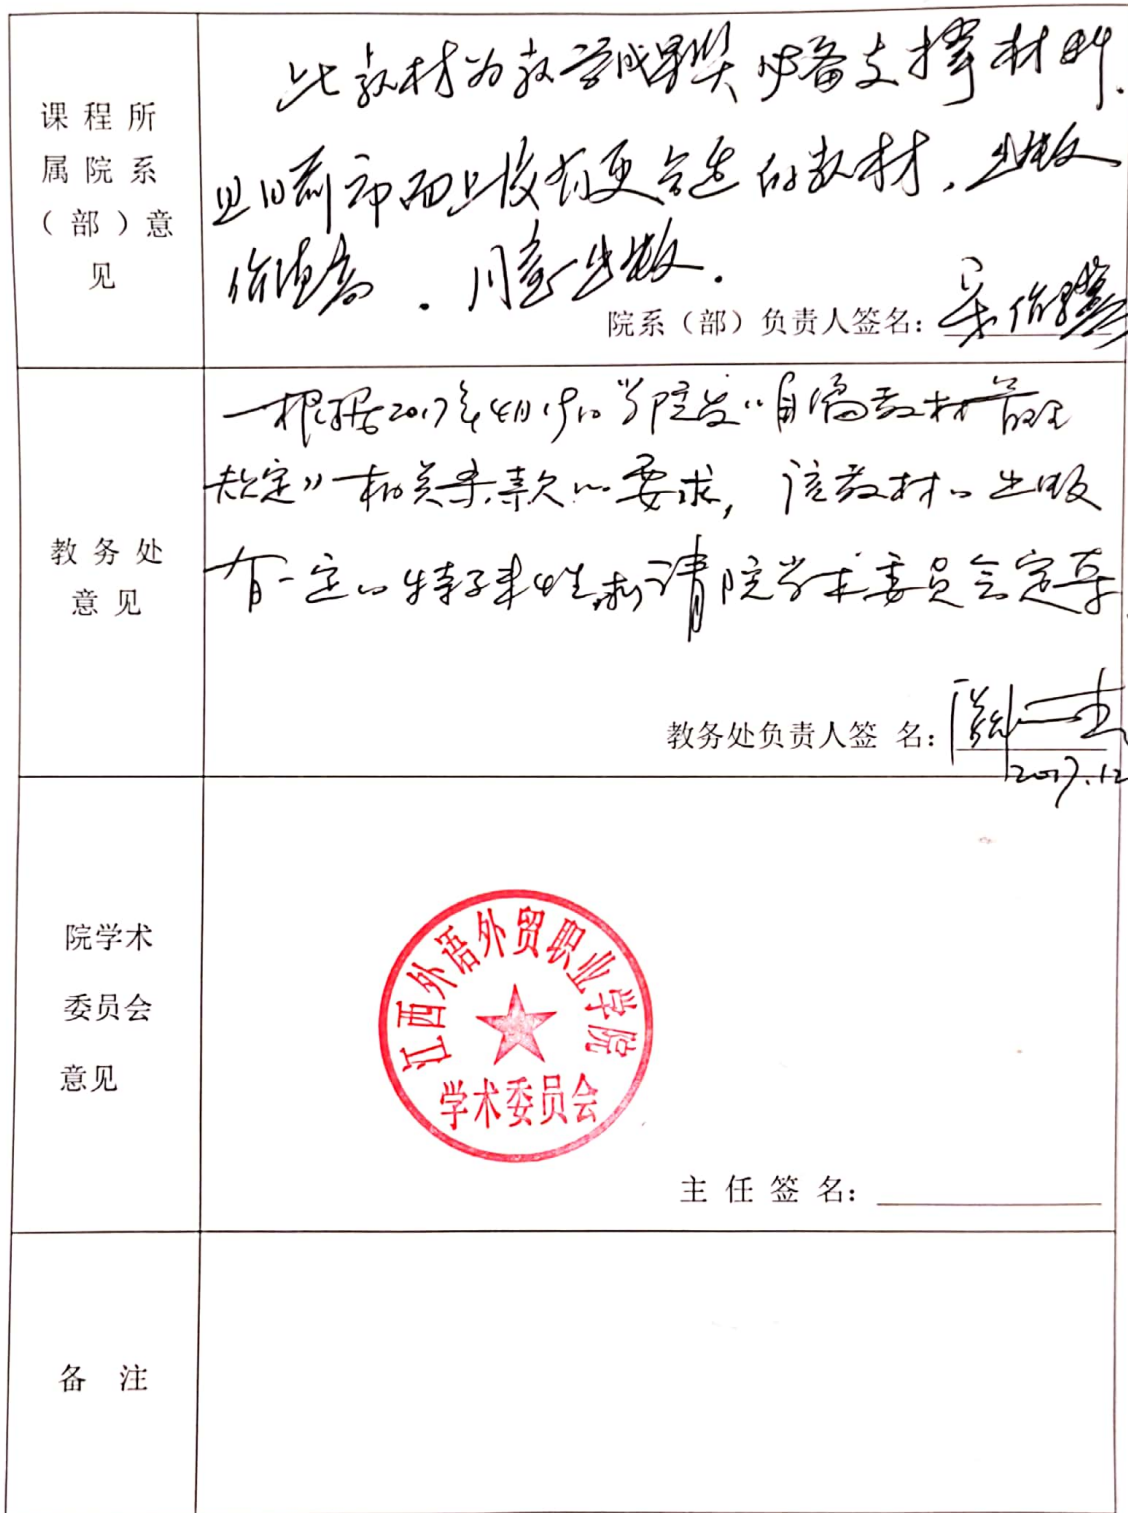 课程所
属院系
（部）意
见
此教材为教学成果奖必备支撑材料.
且目前市面上没有更合适的教材，出版
价值高．同意出版.
院系（部）负责人签名：
教务处
意见
根据2017年4月 学院发“自编教材管理
规定”相关条款的要求，该教材的出版
有一定的特殊性，请院学术委员会定夺
教务处负责人签 名：
2017.12
院学术
委员会
意见
江西外语外贸职业学院
学术委员会
主 任 签 名：
备 注